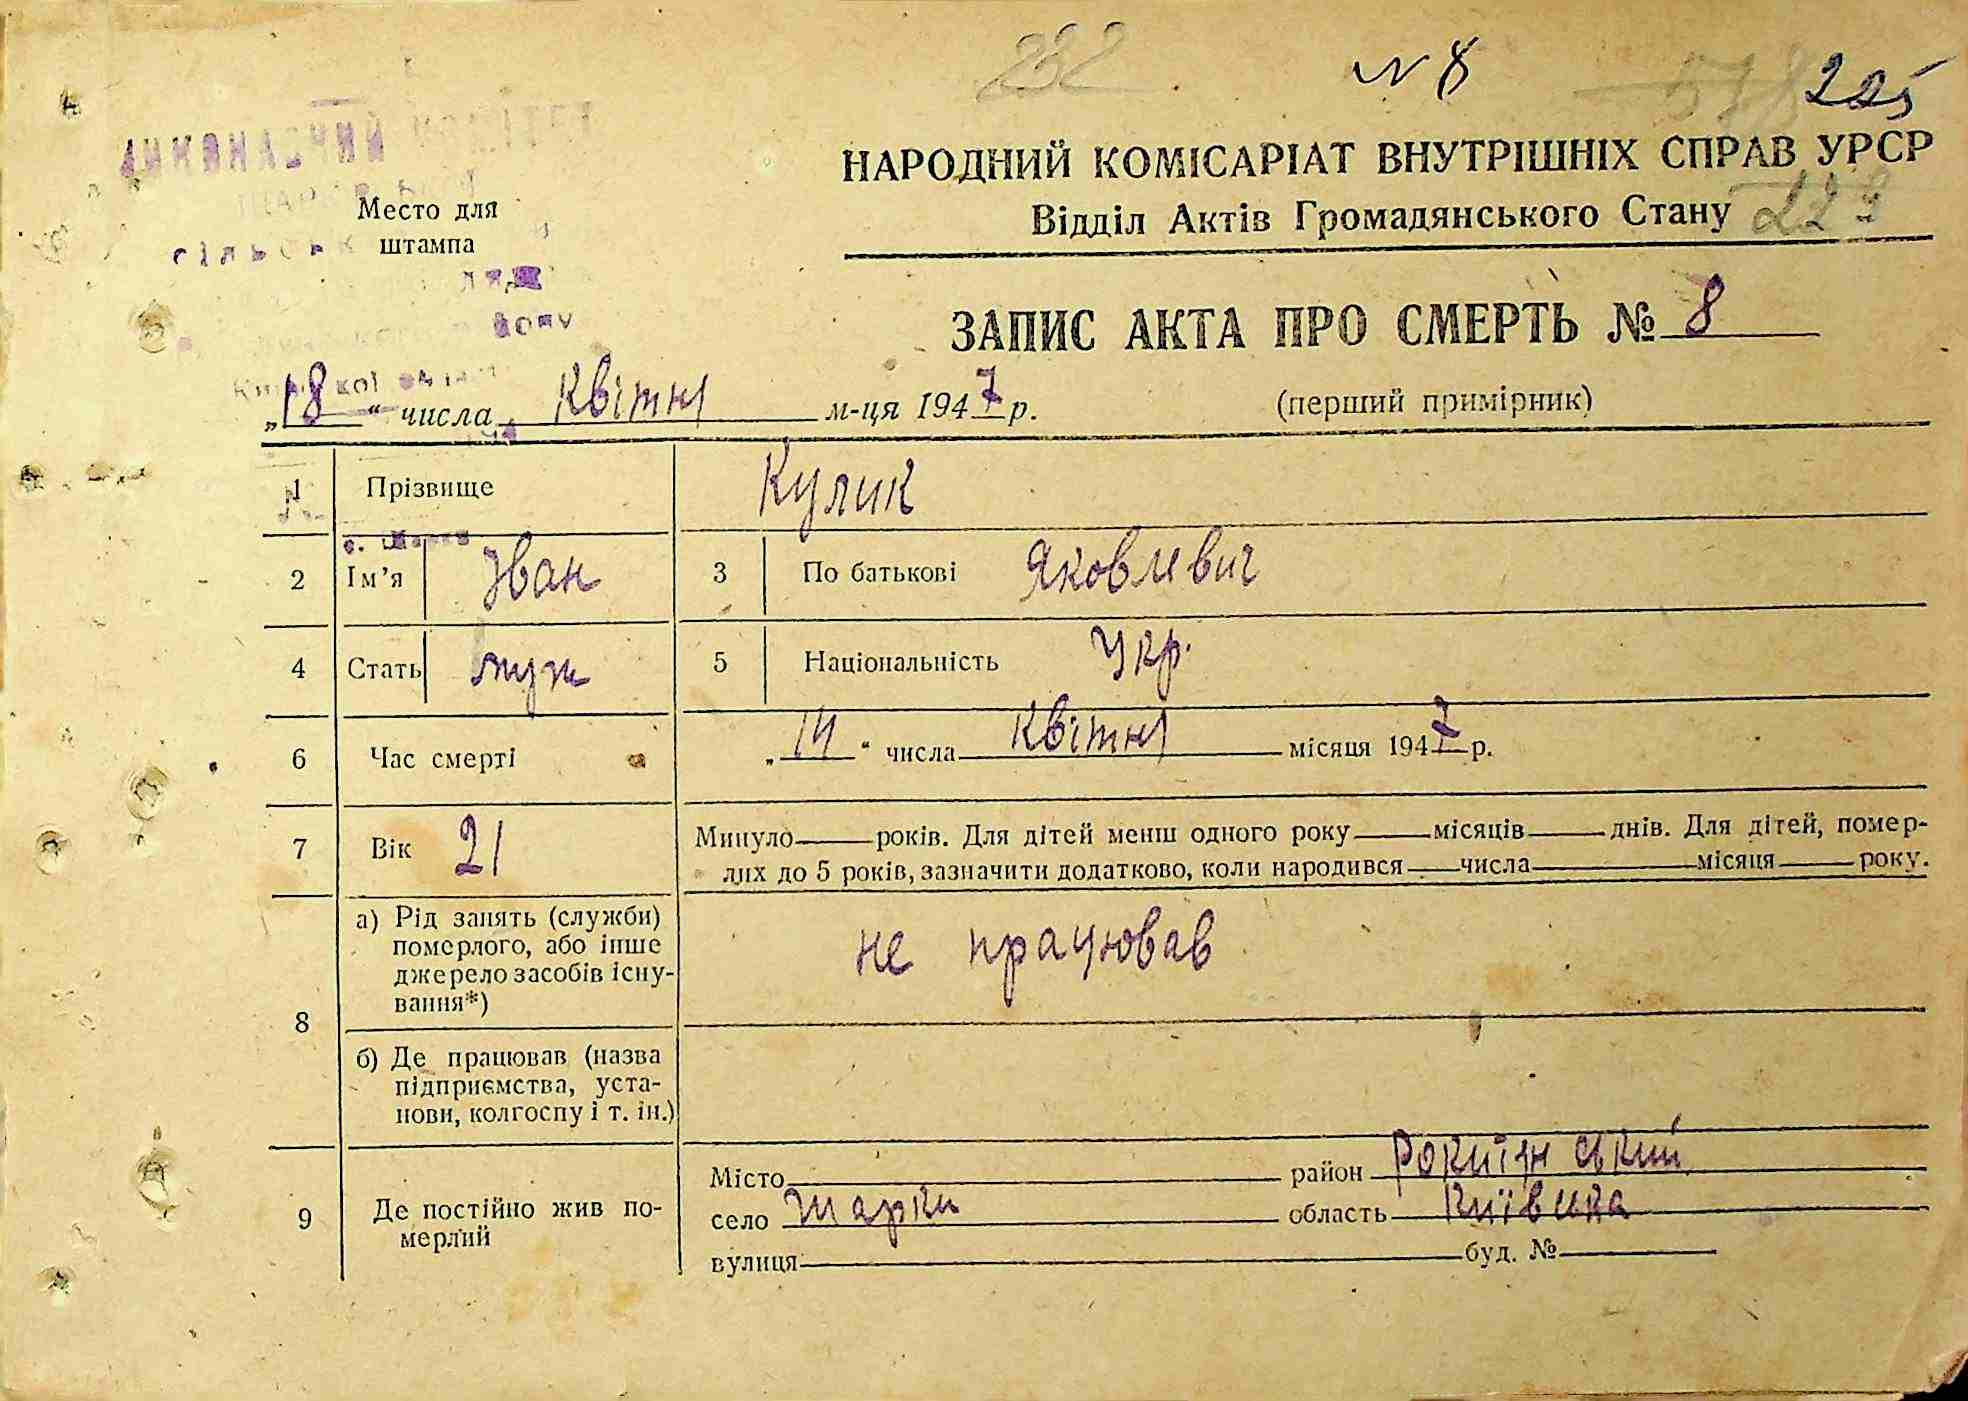 232 № 8 225
НАРОДНИЙ КОМІСАРІАТ ВНУТРІШНІХ СПРАВ УРСР
Відділ Актів Громадянського Стану
Место для
штампа
ЗАПИС АКТА ПРО СМЕРТЬ № 8
„18“ числа квітня м-ця 1947 р.
(перший примірник)
1 Прізвище Кулик
с. Шарки
2 Ім’я Іван 3 По батькові Яковлевич
4 Стать муж 5 Національність Укр.
6 Час смерті „14“ числа квітня місяця 1947 р.
7 Вік 21 Минуло роківː Для дітей менш одного року місяців днів. Для дітей, помер-
лих до 5 років, зазначити додатково, коли народився числа місяця року.
8 а) Рід занять (служби)
померлого, або інше
джерело засобів існу-
вання*)
не працював
б) Де працював (назва
підприємства, уста-
нови, колгоспу і т. ін.)
9 Де постійно жив по-
мерлий
Місто район Рокитянський
село Шарки область Київська
вулиця буд. №